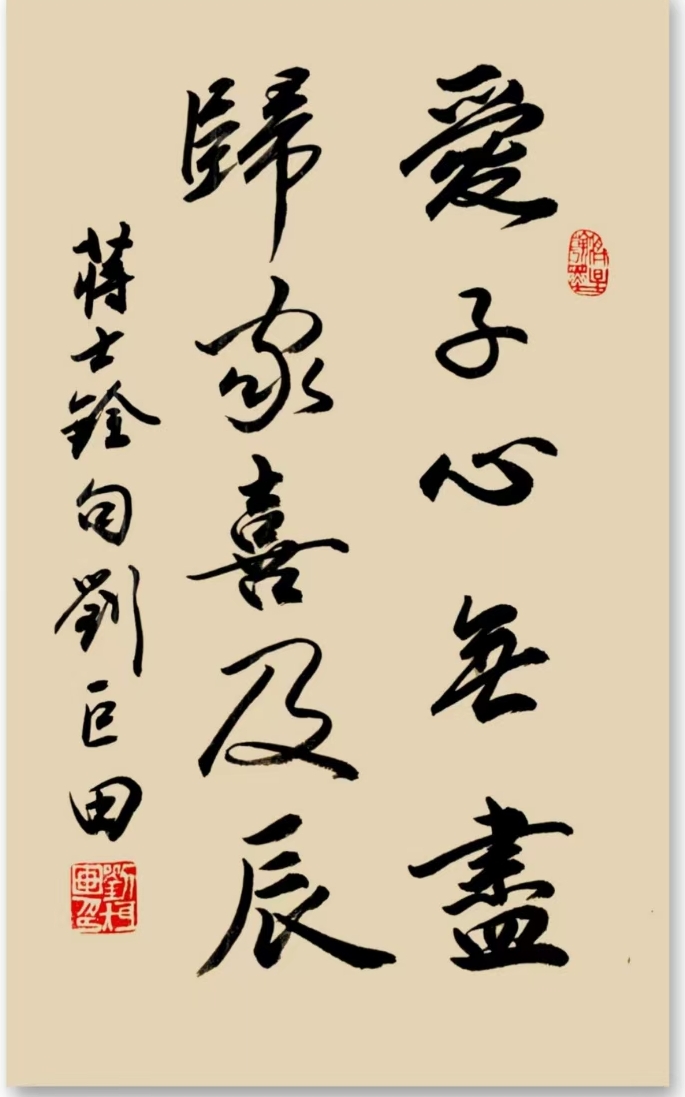 愛子心無盡
歸家喜及辰
蔣士銓句劉巨田